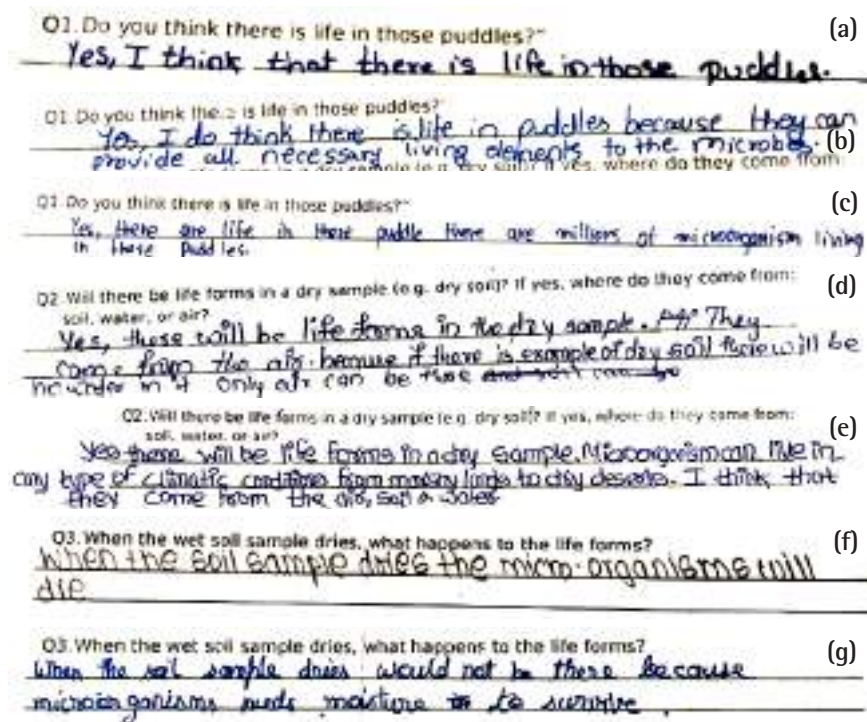 Q1. Do you think there is life in those puddles?"
(a)
Yes, I think that there is life in those puddles.
Q1. Do you think there is life in those puddles?"
Yes, I do think there is life in puddles because they can
(b)
provide all necessary living elements to the microbes.
dry soil)? If yes, where do they come from:
(c)
Q1. Do you think there is life in those puddles?"
Yes, there are life in these puddle there are millions of microorganism living
in these puddles.
(d)
Q2. Will there be life forms in a dry sample (e.g. dry soil)? If yes, where do they come from:
soil, water, or air?
Yes, there will be life forms in the dry sample. They
came from the air. because if there is example of dry soil there will be
no water in it only air can be there
(e)
Q2. Will there be life forms in a dry sample (e.g. dry soil)? If yes, where do they come from:
soil, water, or air?
Yes there will be life forms in a dry sample. Microorganism can live in
any type of climatic conditions from lands to dry deserts. I think, that
they come from the air, soil & water
(f)
Q3. When the wet soil sample dries, what happens to the life forms?
When the soil sample dries the micro-organisms will
die
(g)
Q3. When the wet soil sample dries, what happens to the life forms?
When the soil sample dries would not be there because
microorganisms needs moisture to survive.